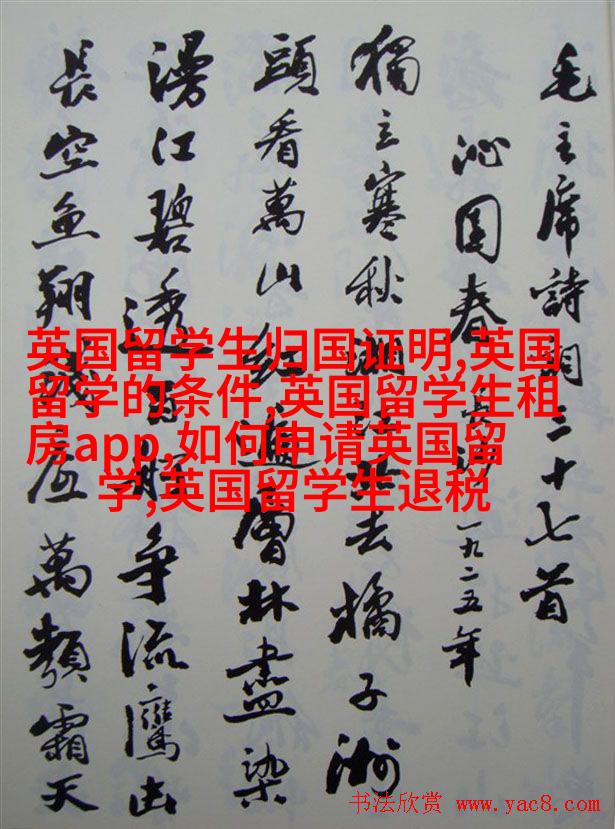 毛主席詩詞三十七首
沁园春 長沙 一九二五年
獨立寒秋湘江北去橘子洲
頭看萬山紅遍層林盡染
漫江碧透百舸争流鷹击
長空魚翔淺底萬類霜天
英国留学生归国证明,英国
留学的条件,英国留学生租
房app,如何申请英国留
学,英国留学生退税
书法欣赏 www.yac8.com